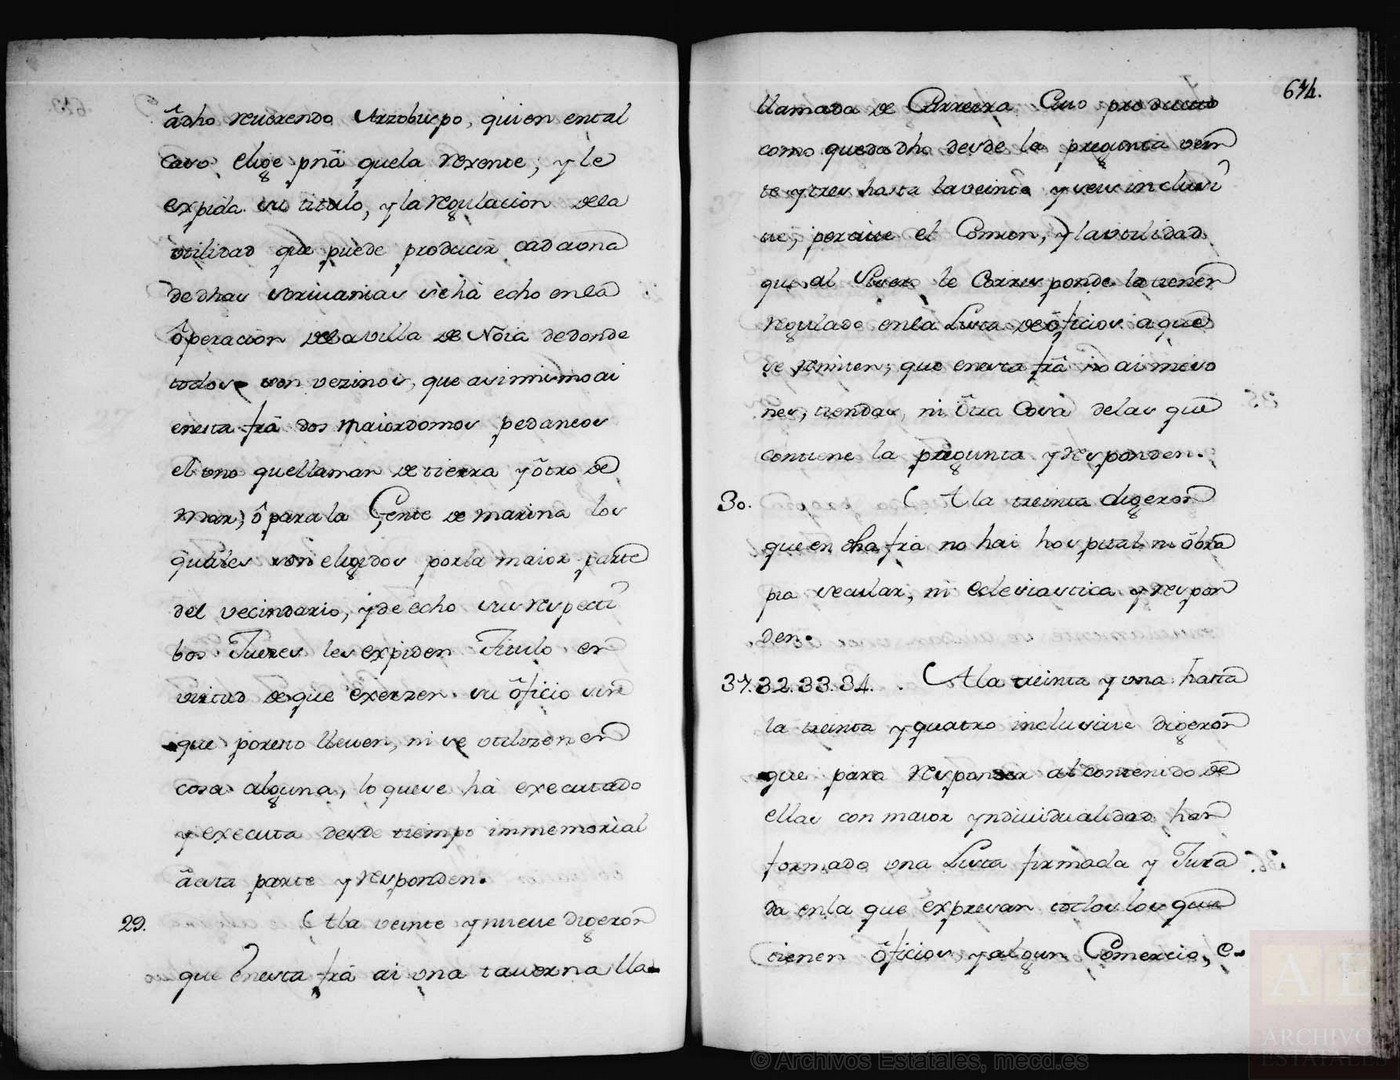 âdho reverendo Arzobispo, quien ental
caso elige pnâ quela rexente; y le
expida su titulo, y la regulacion dela
utilidad que puede producir cada una
de dhas escrivanias se hâ echo en la
ôperacion dela villa de Nôia de donde
todos son vezinos, que asimismo ai
enesta frâ dos Maiordomos pedaneos
el uno quellaman de tierra y ôtro de
mar, ô para la Gente de marina los
quales son elegidos por la maior parte
del vecindario, y de echo sus respecti
bos Juezes les expiden Titulo en
virtud de que exerzen su ôficio sin
que poresto lleven, ni se utilizen en
cosa alguna, lo que se hâ executado
y executa desde tiempo immemorial
âesta parte y responden.
29. A la veinte y nueve digeron
que enesta frâ ai una taverna lla-
634.
llamada de Carreira Cuio producto
como queda dho desde la pregunta vein
te y tres hasta la veinte y seis inclusi
ve, percive el Comun, y la utilidad
que al Sisero le Corresponde la tienen
regulado en la Lista de ôficios a que
se remiten; que enesta frâ no ai meso
nes, tiendas, ni ôtra Cosa delas que
contiene la pregunta y responden.
30. A la treinta digeron
que en dha frâ no hai hospital ni ôbra
pia secular, ni eclesiastica y respon
den.
31.32.33.34. A la treinta y una hasta
la treinta y quatro inclusive digeron
que para responder al contenido de
ellas con maior yndividualidad han
formado una Lista firmada y Jura
da en la que êxpresan todos los que
tienen ôficios y algun Comercio, e-
© Archivos Estatales, mecd.es
AE
ARCHIVOS
ESTATALES